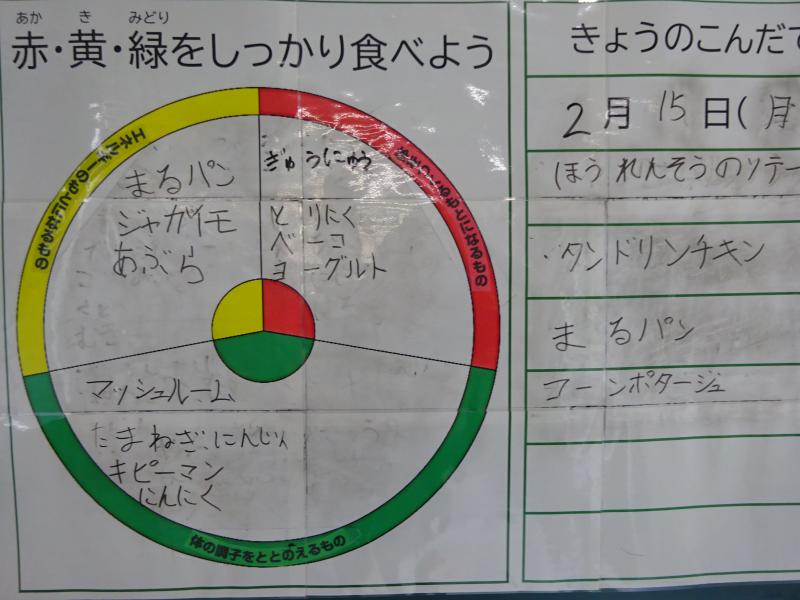 あか き みどり
赤・黄・緑をしっかり食べよう
エネルギーのもとになるもの
まるパン
ジャガイモ
あぶら
ぎゅうにゅう
とりにく
ベーコ
ヨーグルト
になるもの
マッシュルーム
たまねぎ、にんじん
キピーマン
にんにく
体の調子をととのえるもの
きょうのこんだて
2月15日(月
ほうれんそうのソテー
タンドリンチキン
まるパン
コーンポタージュ